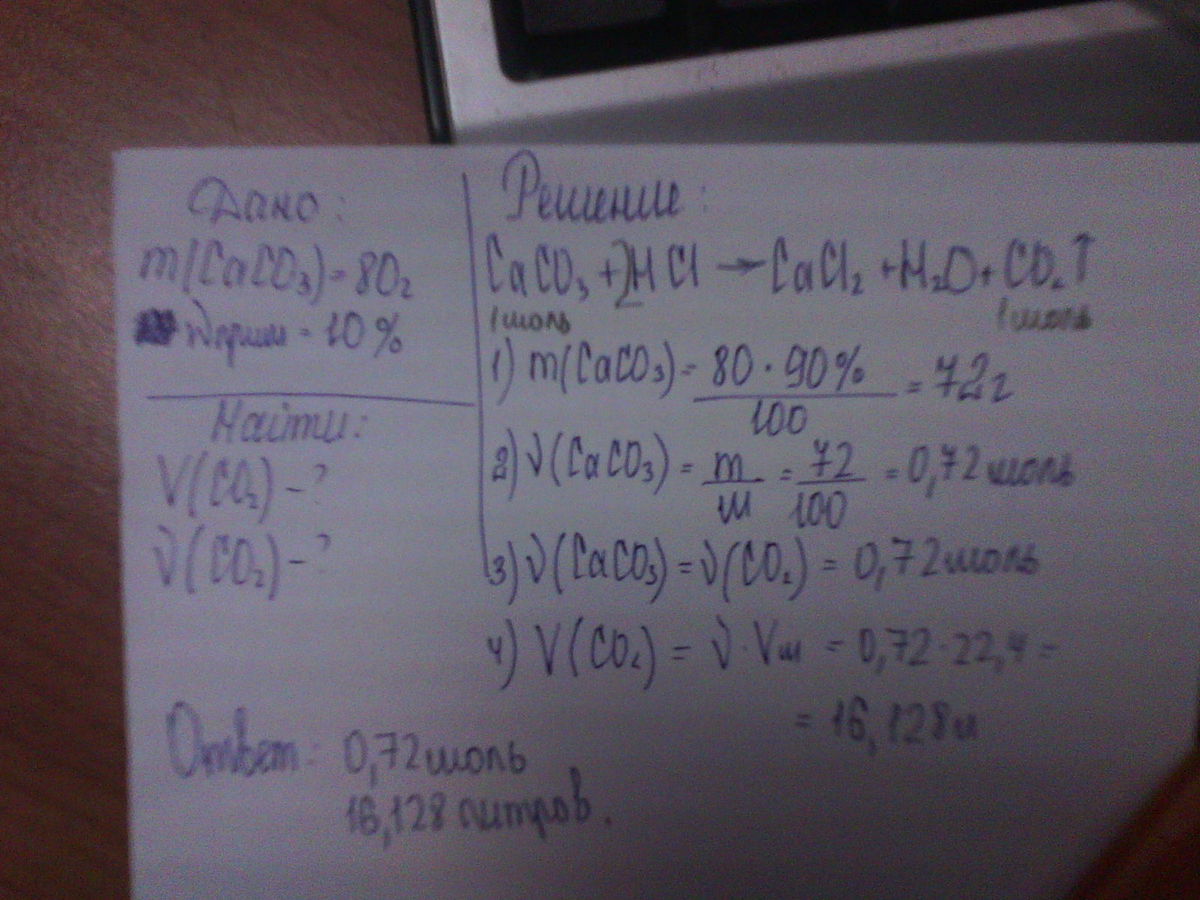 Дано:
m(CaCO₃)=80г
wприм = 10%
Найти:
V(CO₂) - ?
ν(CO₂) - ?
Решение:
CaCO₃ + 2HCl → CaCl₂ + H₂O + CO₂↑
1моль 1моль
1) m(CaCO₃) = 80 · 90% / 100 = 72г
2) ν(CaCO₃) = m / M = 72 / 100 = 0,72 моль
3) ν(CaCO₃) = ν(CO₂) = 0,72 моль
4) V(CO₂) = ν · Vм = 0,72 · 22,4 =
= 16,128л
Ответ: 0,72 моль
16,128 литров.